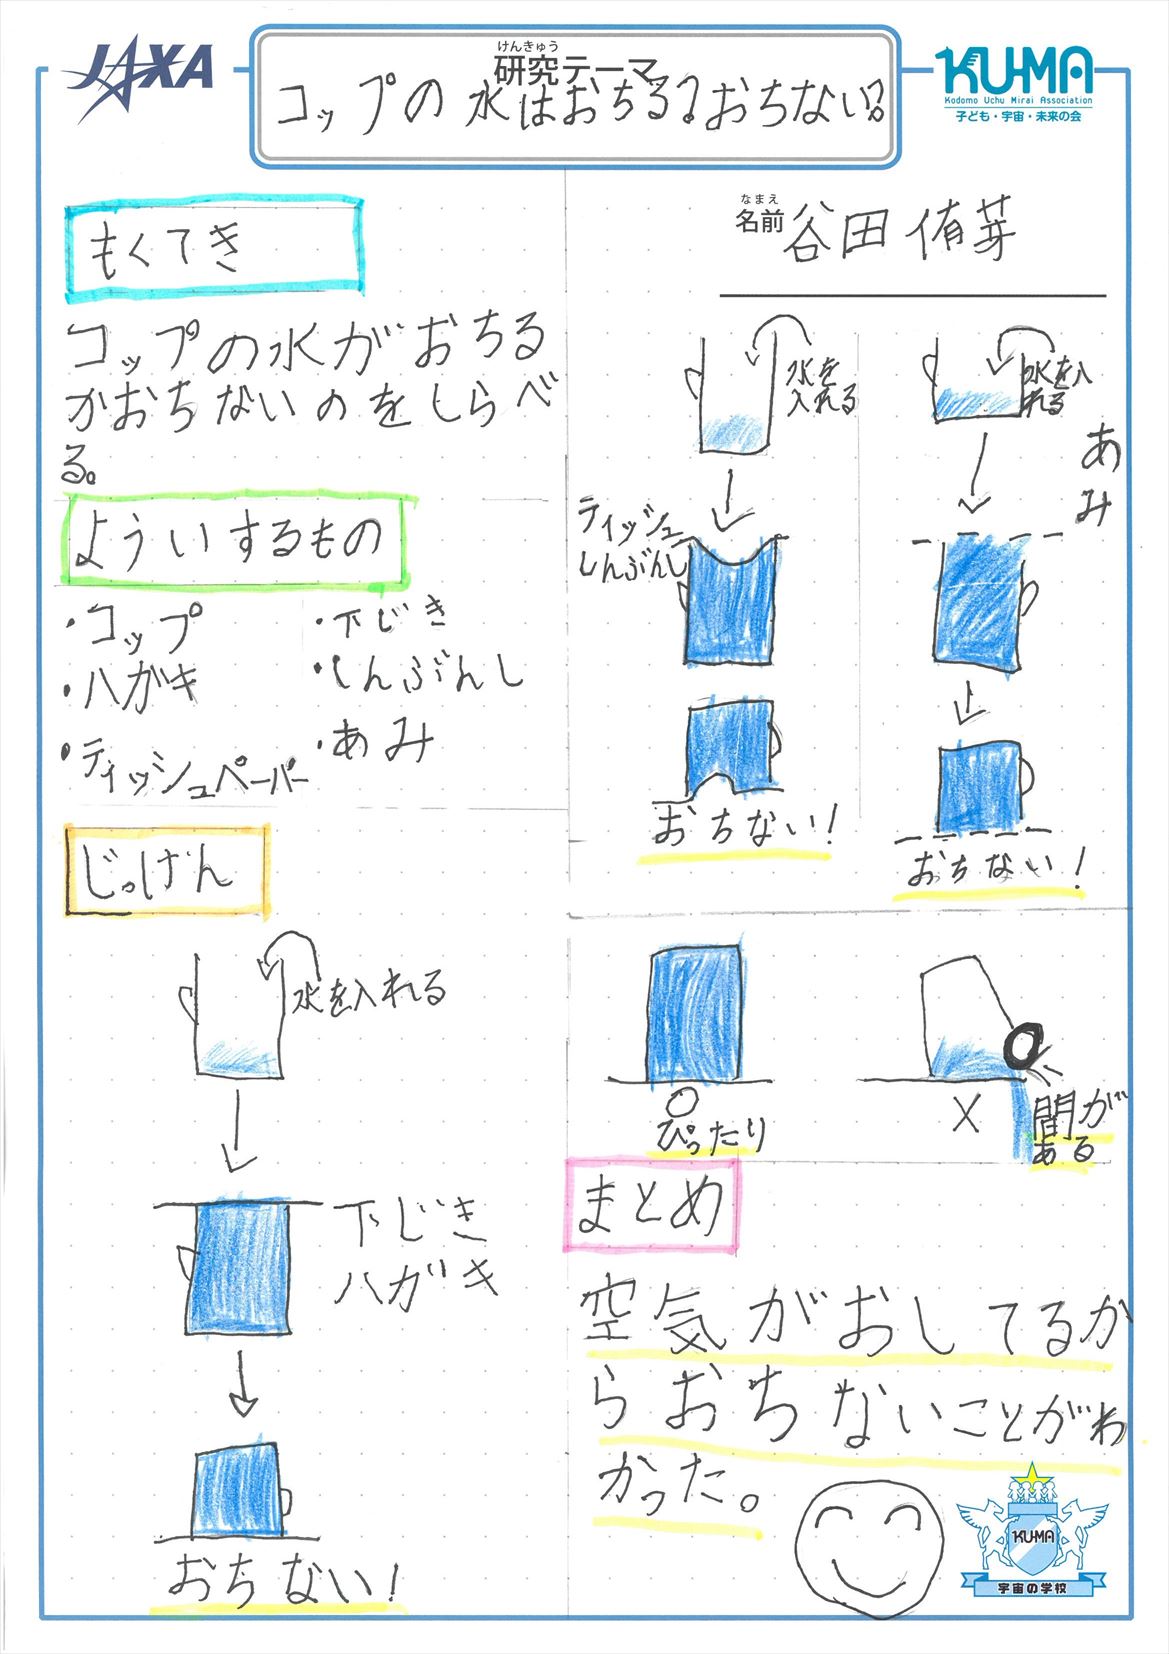 JAXA
けんきゅう
研究テーマ
コップの水はおちる?おちない?
KU-MA
Kodomo Uchu Mirai Association
子ども・宇宙・未来の会
なまえ
名前 谷田侑芽
もくてき
コップの水がおちる
かおちないのをしらべ
る。
よういするもの
・コップ
・ハガキ
・ティッシュペーパー
・下じき
・しんぶんし
・あみ
じっけん
水を入れる
下じき
ハガキ
おちない!
水を
入れる
ティッシュ
しんぶんし
おちない!
水を入
れる
あ
み
おちない!
○
ぴったり
×
間が
ある
まとめ
空気がおしてるか
らおちないことがわ
かった。
KU-MA
宇宙の学校